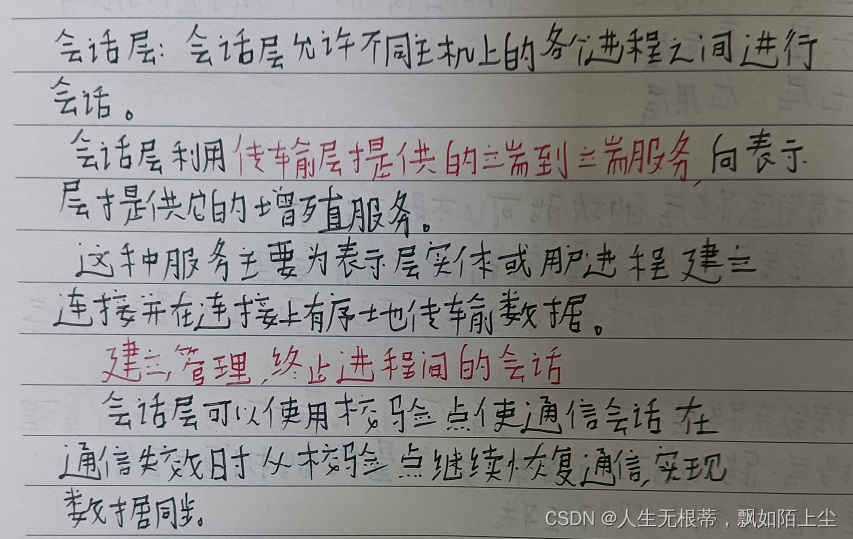 会话层：会话层允许不同主机上的各个进程之间进行
会话。
会话层利用传输层提供的端到端服务，向表示
层提供它的增殖服务。
这种服务主要为表示层实体或用户进程建立
连接并在连接上有序地传输数据。
建立，管理，终止进程间的会话
会话层可以使用校验点使通信会话在
通信失效时从校验点继续恢复通信，实现
数据同步。
CSDN @人生无根蒂，飘如陌上尘